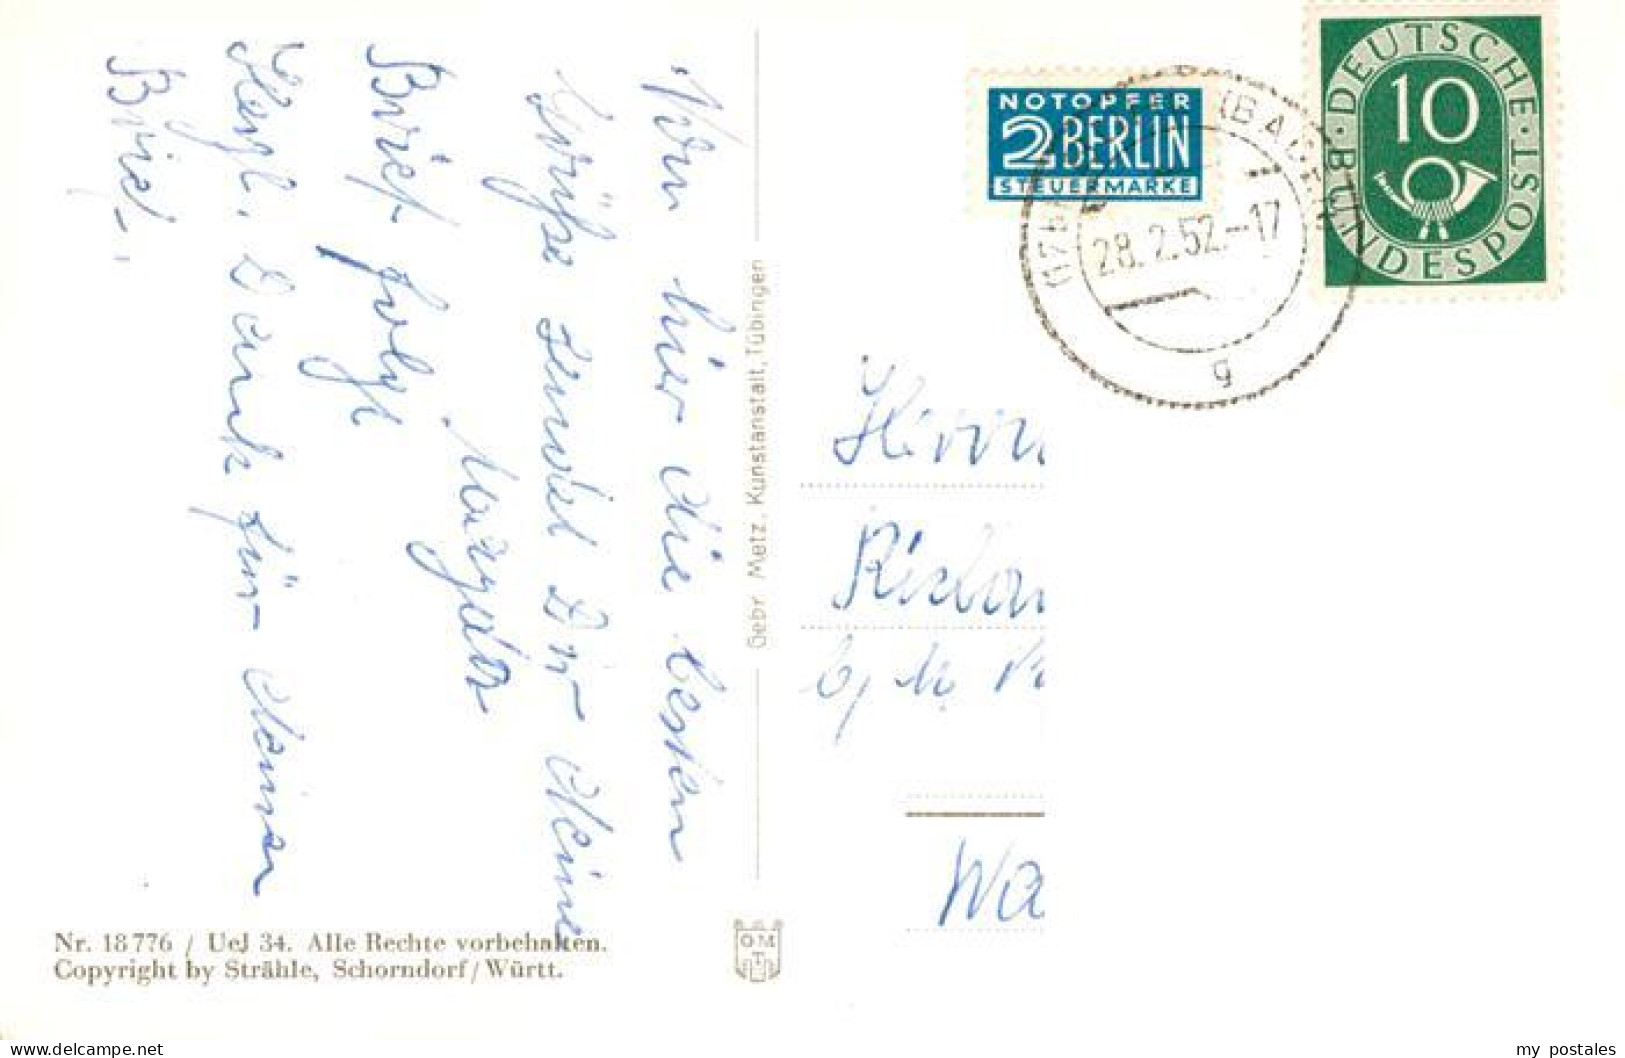 Von hier die besten
Grüße sendet Dir Deine
Brief folgt
Herzl. Dank für Deinen
Brief.
Gebr. Metz, Kunstanstalt, Tübingen
NOTOPFER
2 BERLIN
STEUERMARKE
DEUTSCHE BUNDESPOST
10
28.2.52.-17
g
Herrn
Wa
Nr. 18776 / UeJ 34. Alle Rechte vorbehalten.
Copyright by Strähle, Schorndorf / Württ.
my postales
delcampe.net